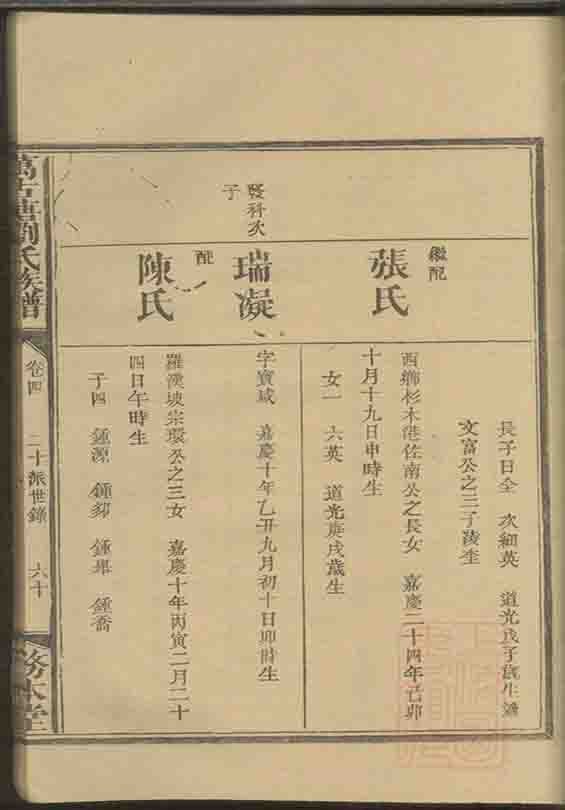 長子日全 次細英 道光戊子歲生
文富公之三子
繼配
張氏
西鄉杉木港佐南公之長女 嘉慶二十四年己卯
十月十九日申時生
女一 六英 道光庚戌歲生
賢科次
子
瑞凝
字寶咸 嘉慶十年乙丑九月初十日卯時生
配
陳氏
羅漢坡宗環公之三女 嘉慶十年丙寅二月二十
四日午時生
子四 鍾源 鍾鄒 鍾畢 鍾喬
劉氏族譜
卷四 二十派世錄 六十
務本堂